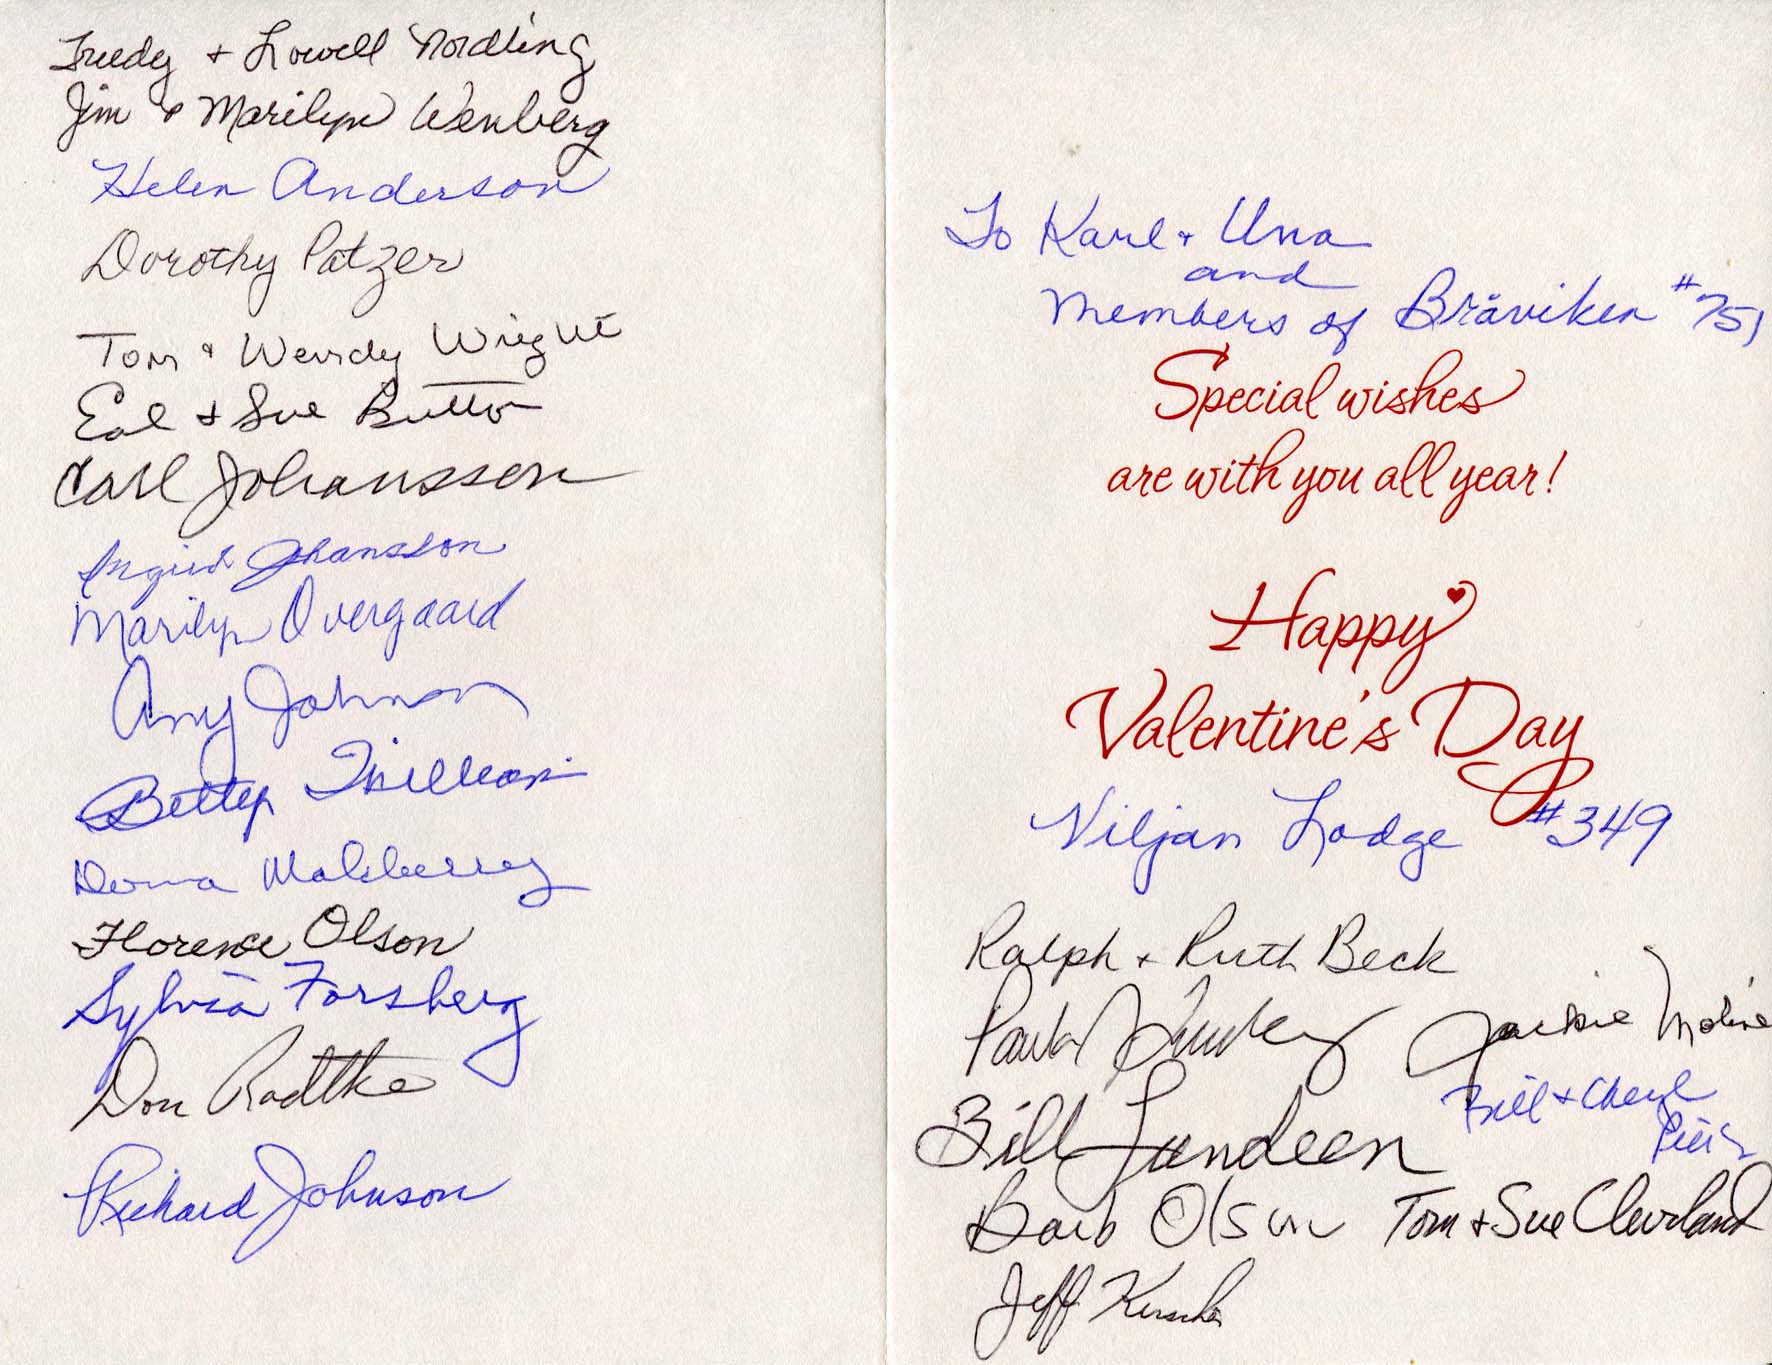 Trudy + Lowell Nordling
Jim & Marilyn Wenberg
Helen Anderson
Dorothy Patzer
Tom & Wendy Wright
Earl + Sue Button
Carl Johansson
Ingrid Johansson
Marilyn Overgaard
Amy Johnson
Betty
Donna
Florence Olson
Sylvia Forsberg
Don Radtke
Richard Johnson
To Karl + Una
and
Members of Bråviken #751
Special wishes
are with you all year!
Happy
Valentine's Day
Viljan Lodge #349
Ralph + Ruth Beck
Paula
Jackie Moline
Bill + Cheryl
Bill Lundeen
Barb Olson
Tom + Sue Cleveland
Jeff